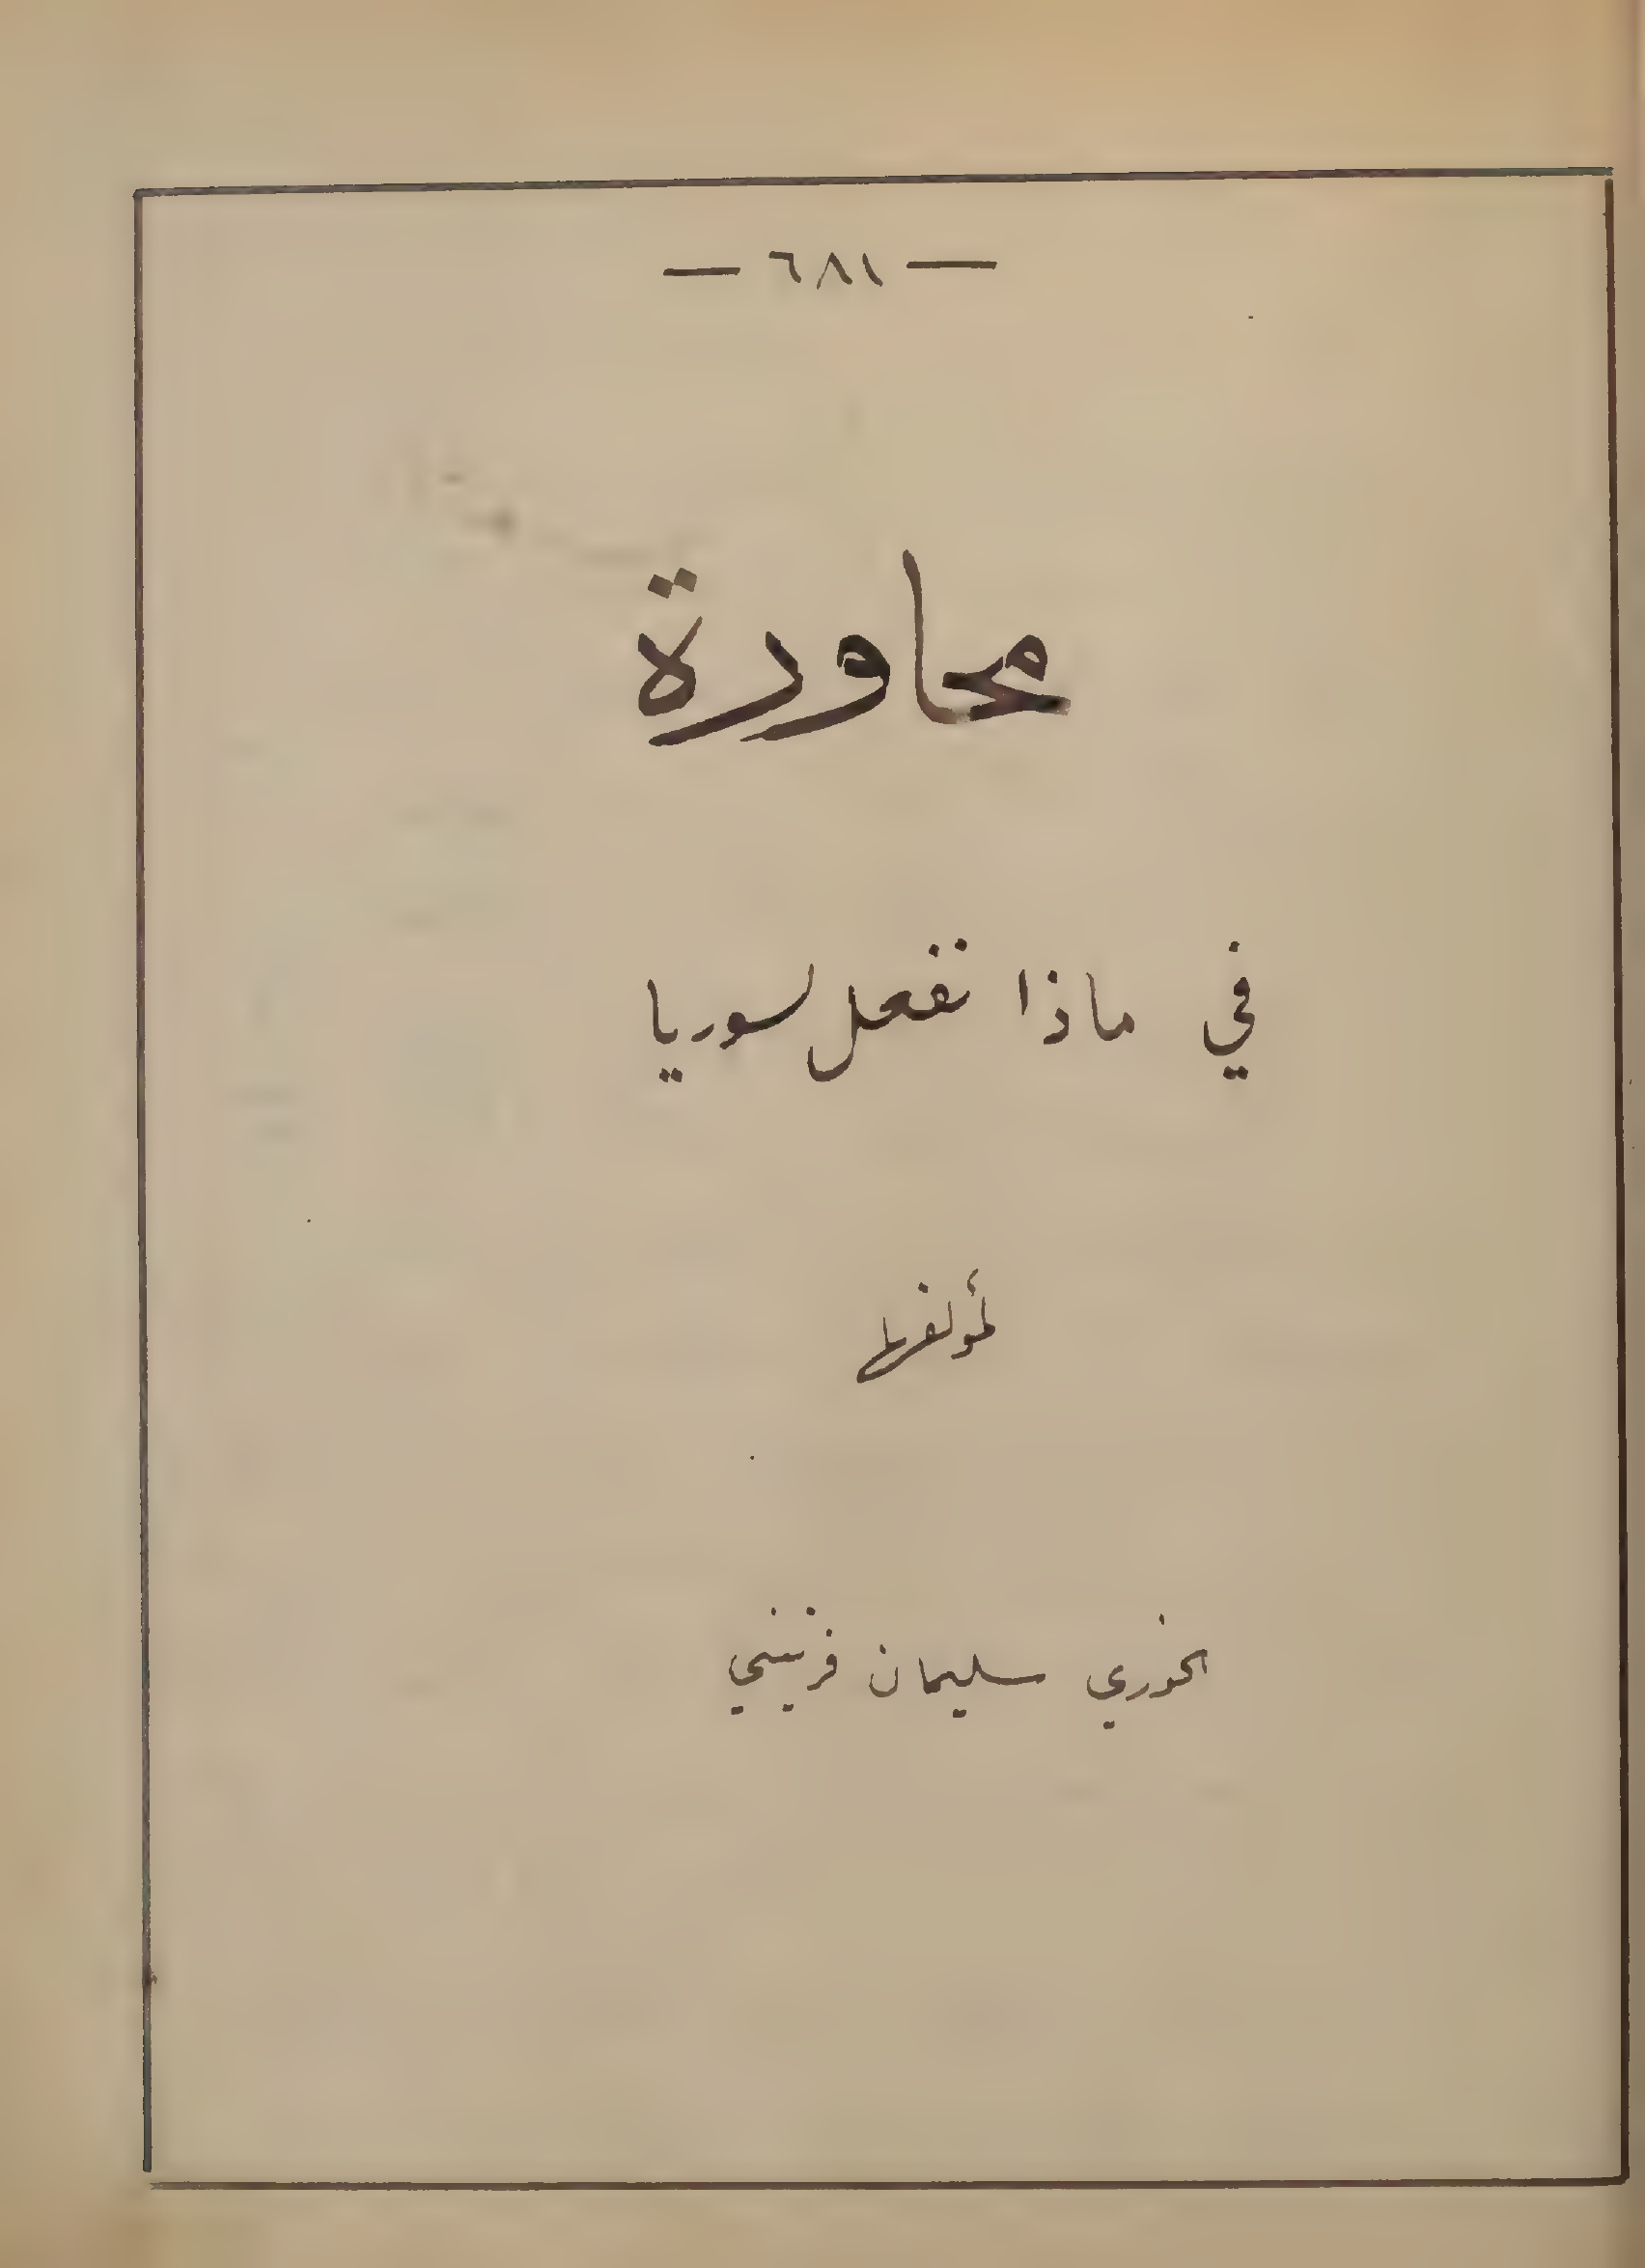 — ٦٨١ —
محاورة
في ماذا نفعل لسوريا
لمؤلفها
الخوري سليمان فرنيني